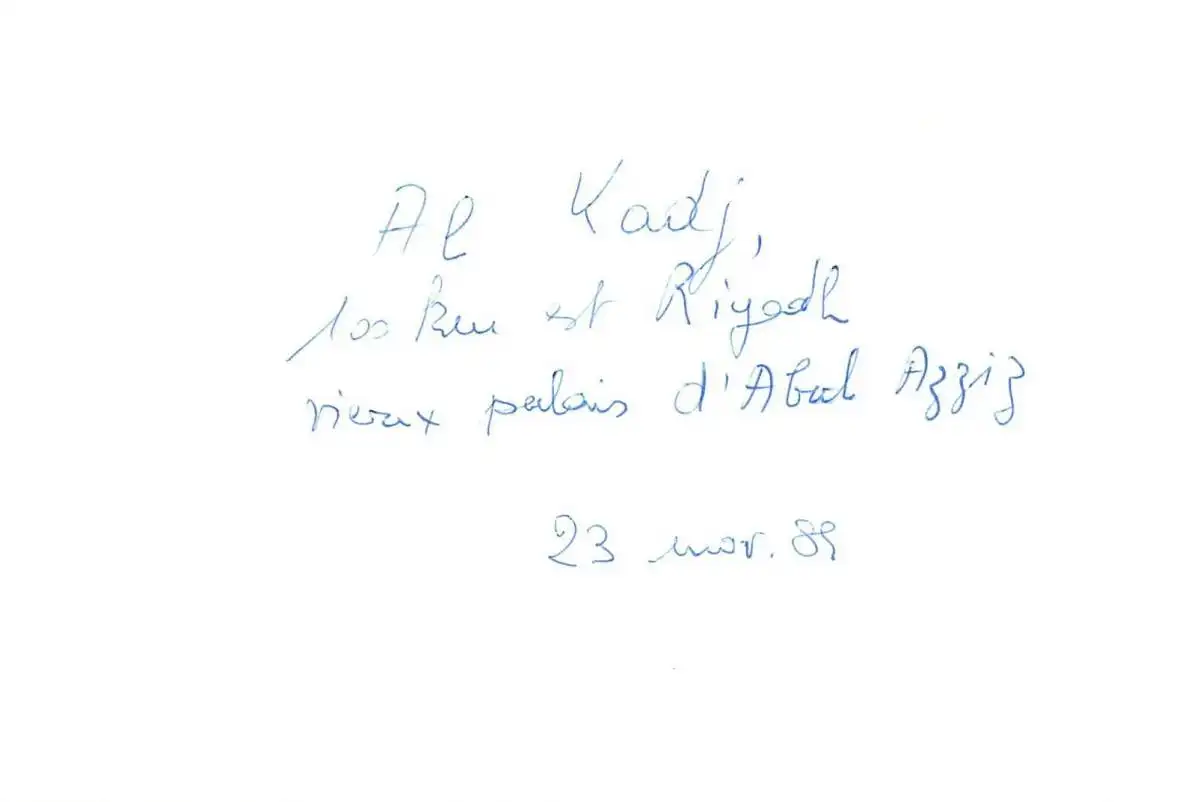 Al Kadj,
100 km est Riyadh
vieux palais d'Abdul Azziz
23 nov. 89